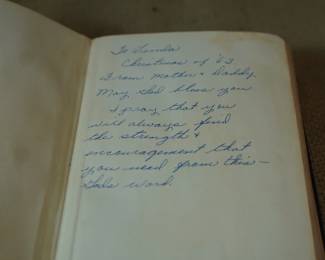 To Linda
Christmas of '63
From Mother & Daddy.
May God bless you
I pray that you
will always find
the strength &
encouragement that
you need from this –
Gods word.